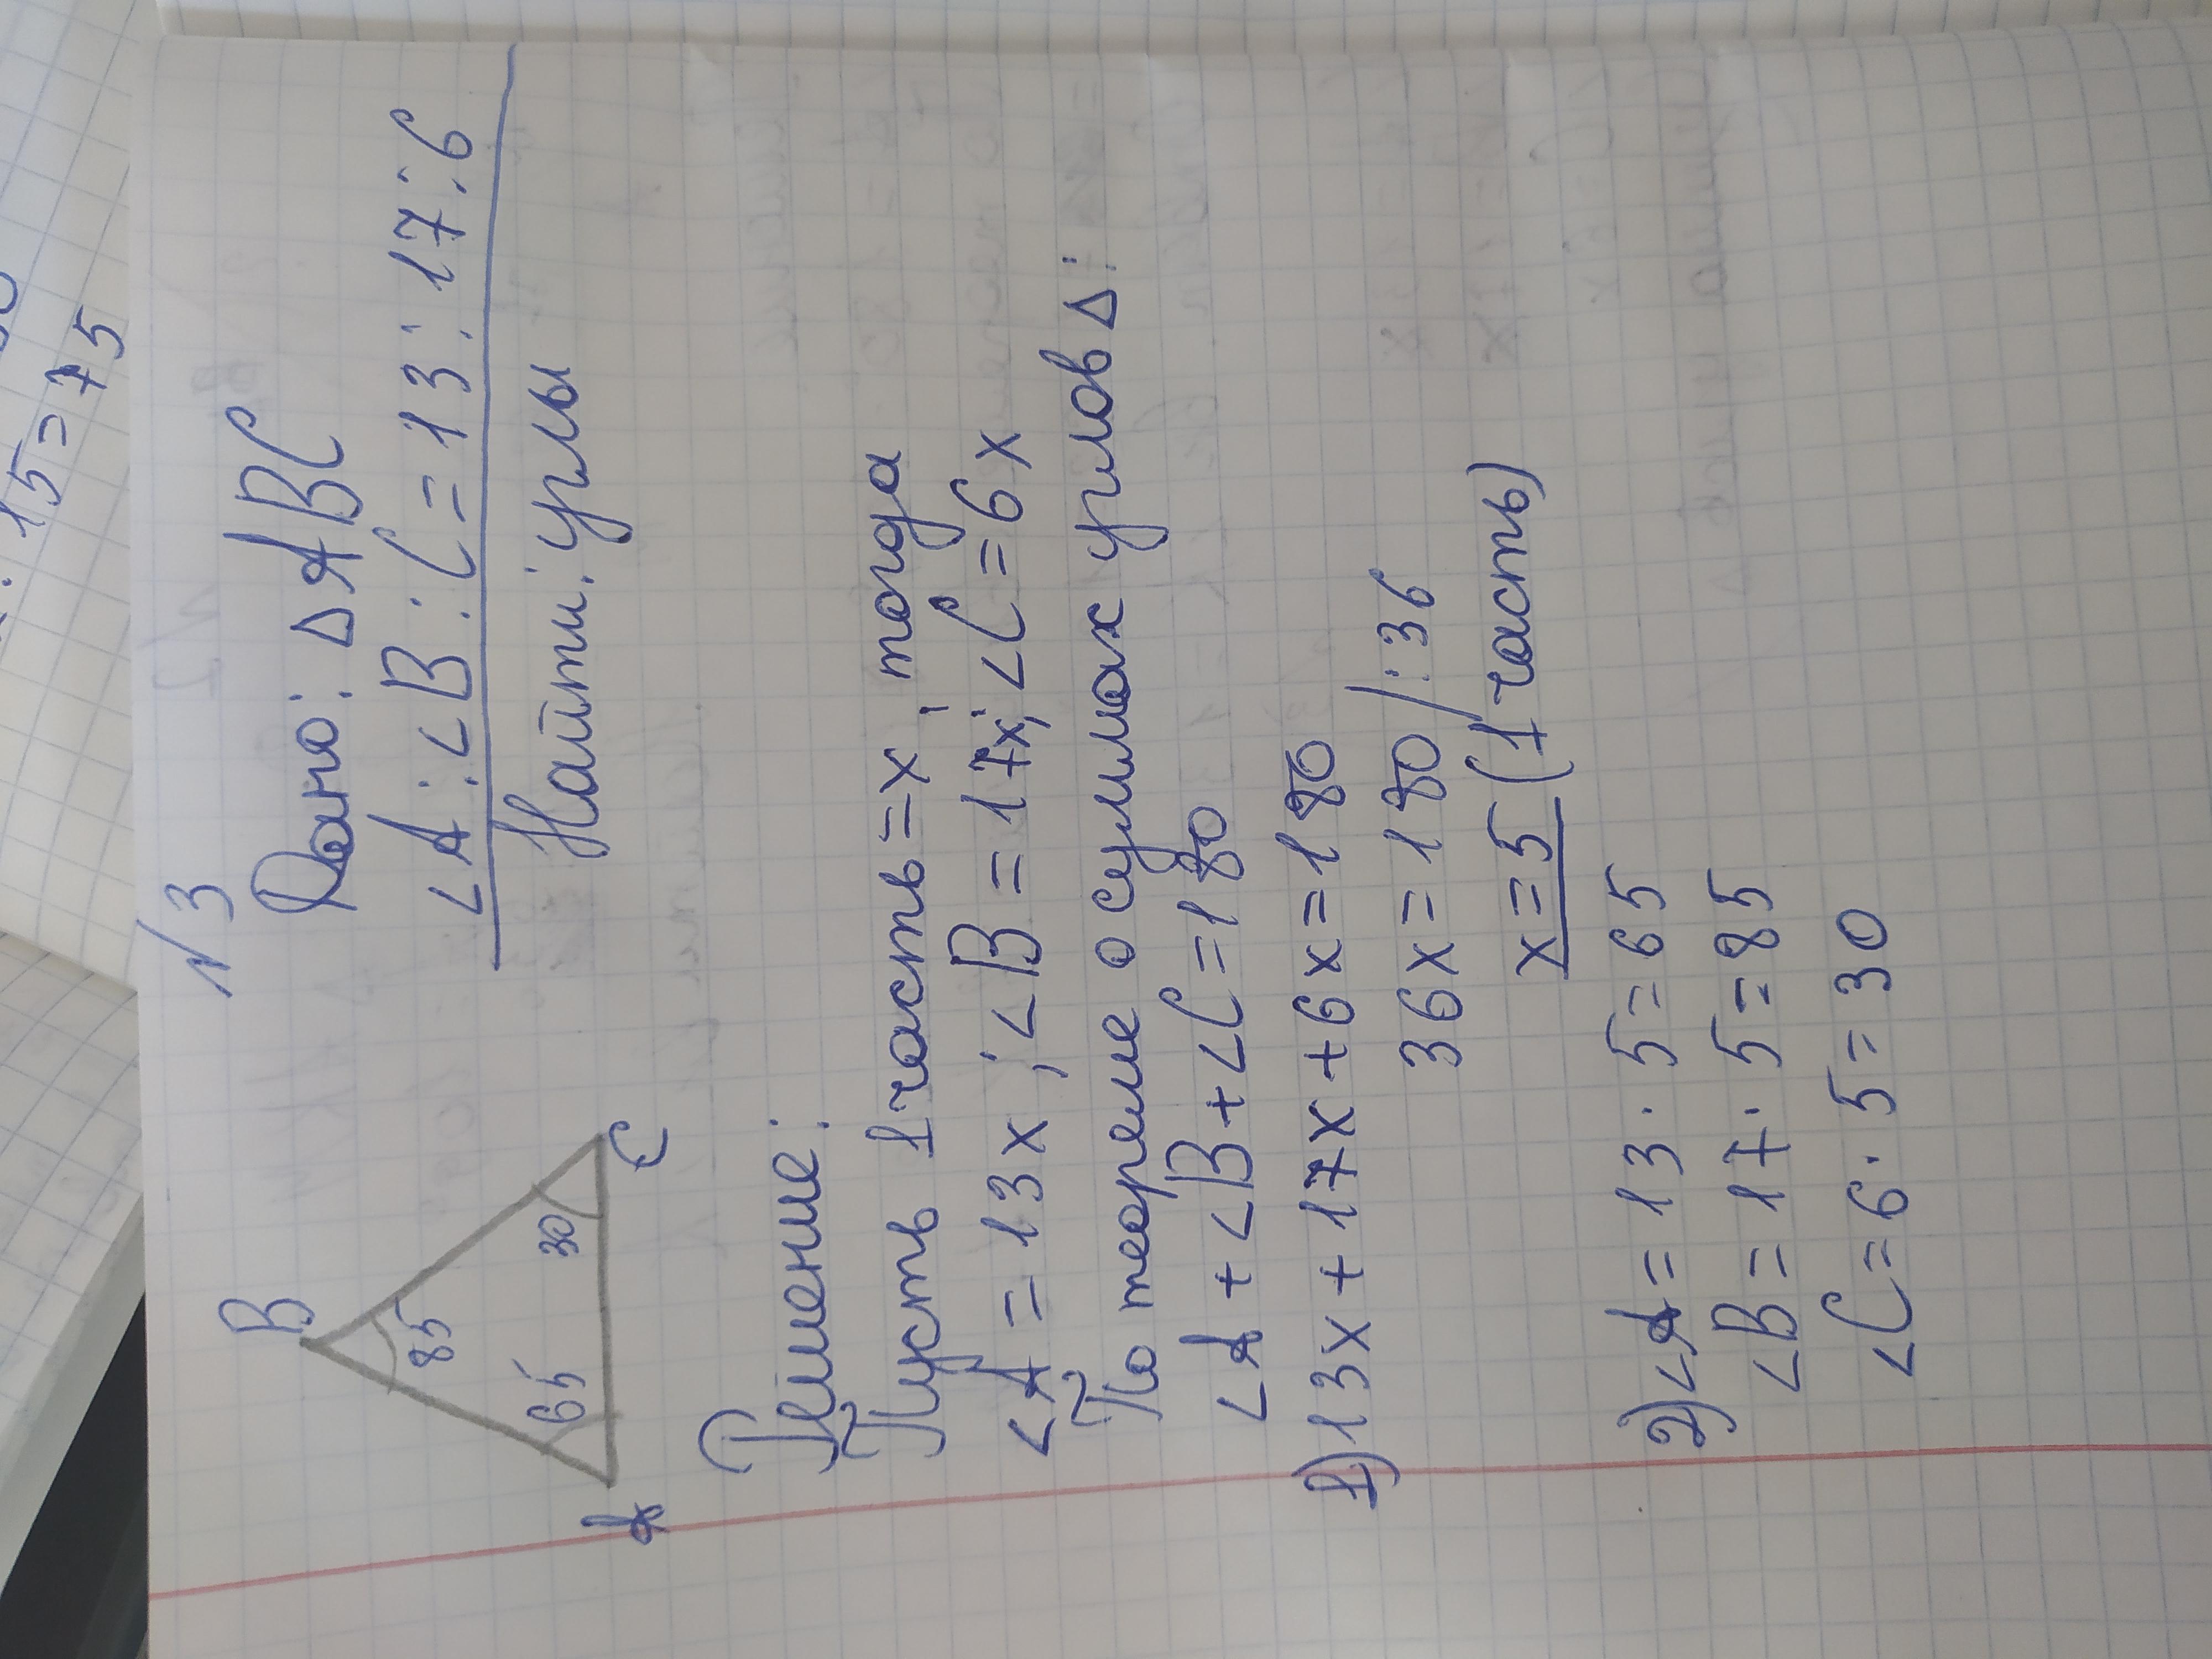 15=75
N3
B
85
65
30
A
C
Дано: ΔABC
<A:<B:<C=13:17:6
Найти: углы
Решение:
Пусть 1 часть=x, тогда
<A=13x; <B=17x; <C=6x
По теореме о суммах углов Δ:
<A+<B+<C=180
1) 13x+17x+6x=180
36x=180 /:36
x=5 (1 часть)
2) <A=13·5=65
<B=17·5=85
<C=6·5=30